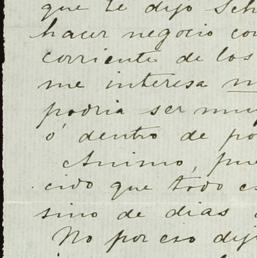 que te dijo Sch
hacer negocio con
corriente de los
me interesa m
podria ser muy
ó dentro de po
Animo, pue
cido que todo es
sino de dias
No por eso dij